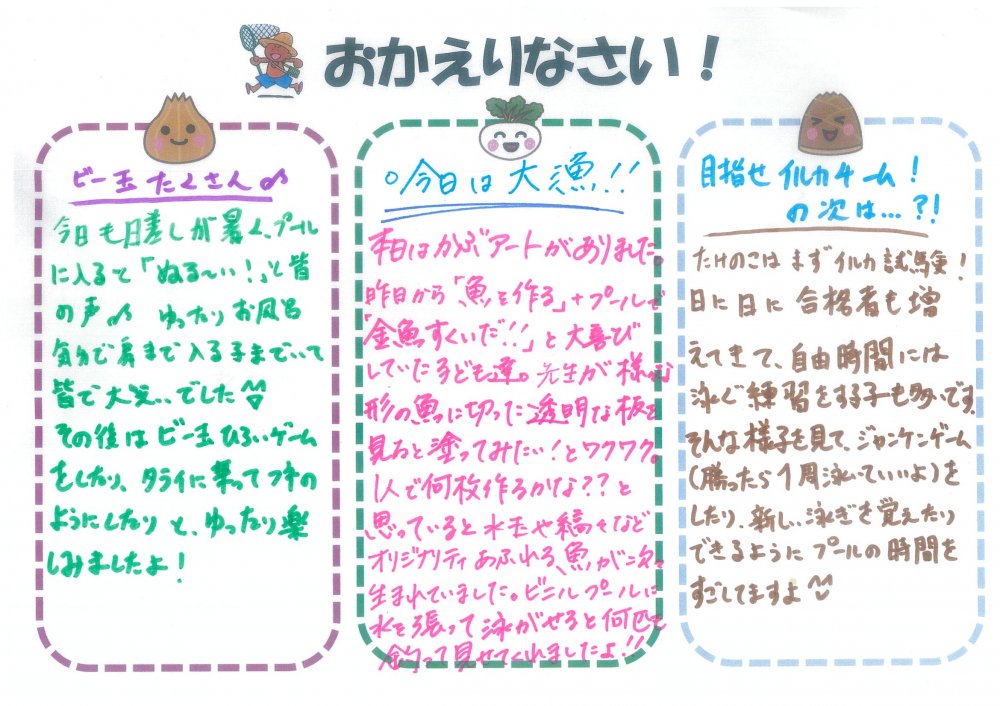 おかえりなさい！
ビー玉たくさん♪
今日も日差しが暑く、プール
に入ると「ぬる〜い！」と皆
の声♪ ゆったりお風呂
気分で肩まで入る子までいて
皆で大笑いでした
その後はビー玉ひろいゲーム
をしたり、タライに乗ってフネの
ようにしたりと、ゆったり楽
しみましたよ！
。今日は大漁！！
本日はかぶアートがありました。
昨日から「魚を作る」＋プールで
「金魚すくいだ！！」と大喜び
していた子ども達。先生が様々な
形の魚に切った透明な板を
見ると塗ってみたい！とワクワク。
1人で何枚作るかな？？と
思っていると水玉や縞々など
オリジナリティあふれる魚が次々
生まれていました。ビニルプールに
水を張って泳がせると何匹も
釣って見せてくれましたよ！！
目指せイルカチーム！
の次は…？！
たけのこはまずイルカ試験！
日に日に合格者も増
えてきて、自由時間には
泳ぐ練習をする子も多いです。
そんな様子を見て、ジャンケンゲーム
（勝ったら1周泳いでいいよ）を
したり、新しい泳ぎを覚えたり
できるようにプールの時間を
すごしてますよ